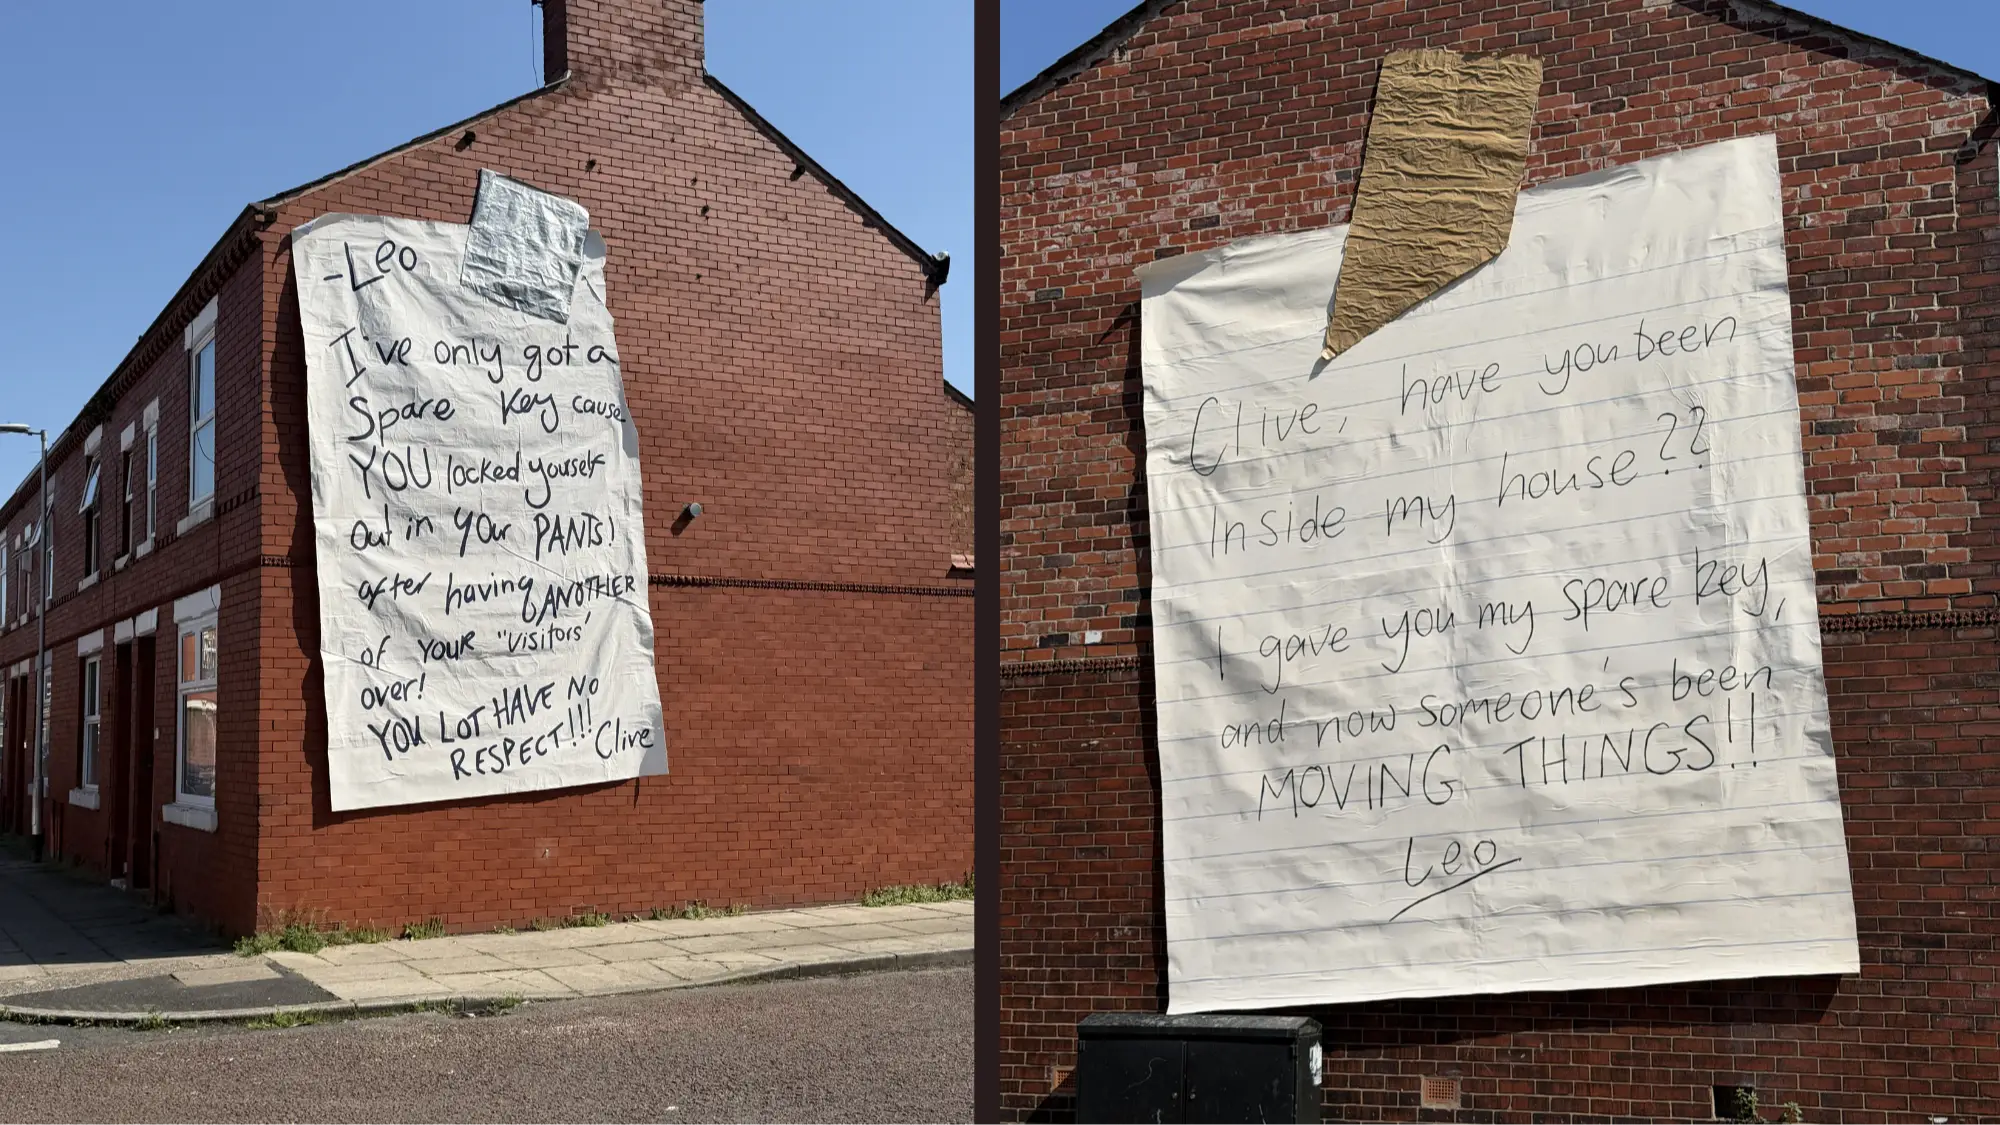 -Leo
I've only got a
Spare key cause
YOU locked youself
out in your PANTS!
after having ANOTHER
of YOUR "visitors'
over!
YOU LOT HAVE NO
RESPECT!!! Clive
Clive, have you been
Inside my house??
I gave you my spare key,
and now someone's been
MOVING THINGS!!
Leo